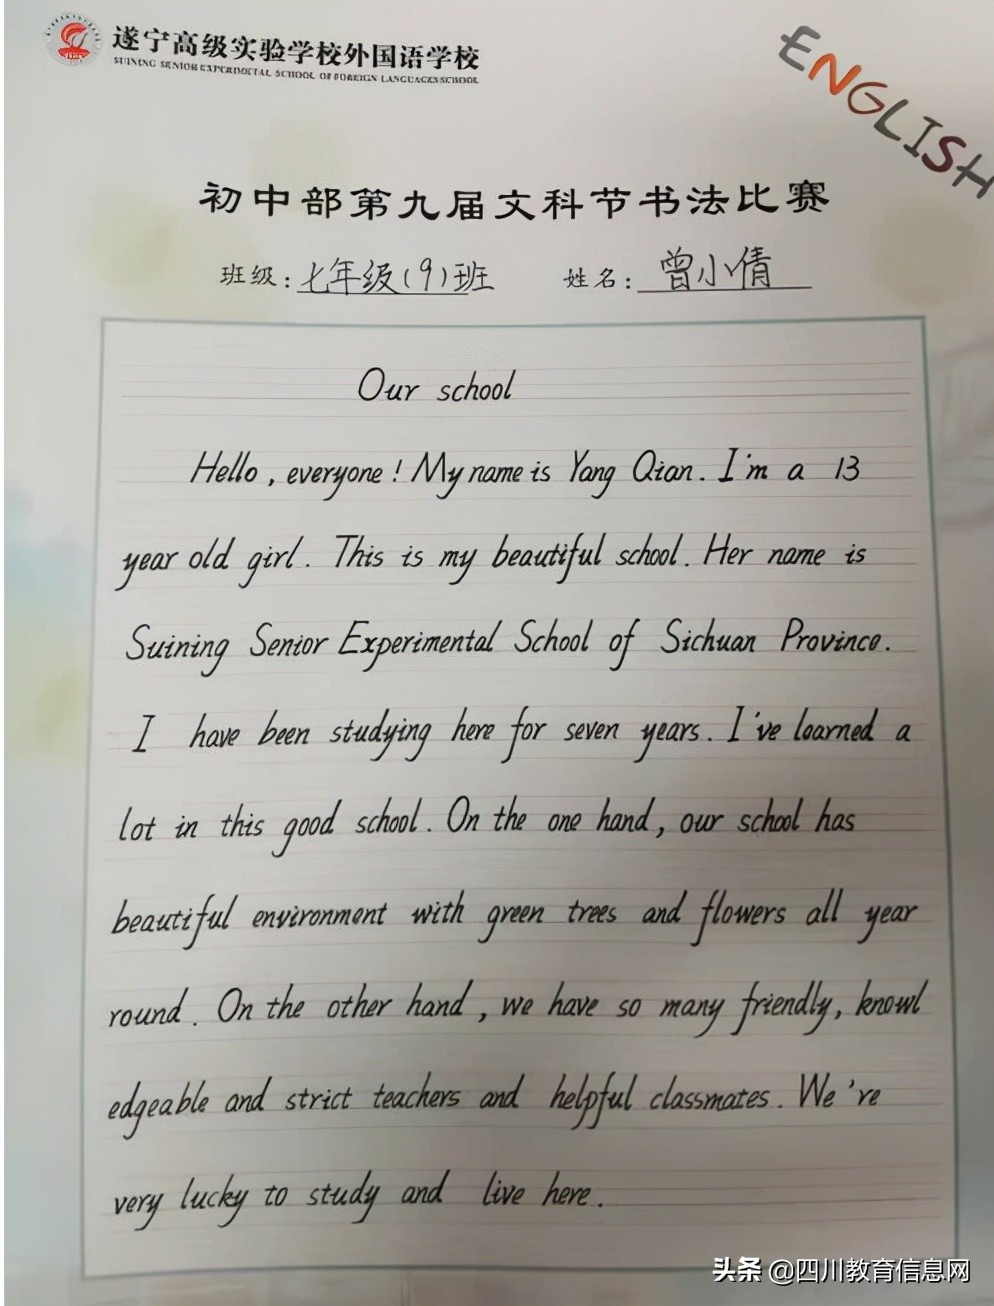 遂宁高级实验学校外国语学校
SUINING SENIOR EXPERIMETAL SCHOOL OF FOREIGN LANGUAGES SCHOOL
ENGLISH
初中部第九届文科节书法比赛
班级:七年级(9)班 姓名:曾小倩
Our school
Hello, everyone! My name is Yang Qian. I'm a 13
year old girl. This is my beautiful school. Her name is
Suining Senior Experimental School of Sichuan Province.
I have been studying here for seven years. I've learned a
lot in this good school. On the one hand, our school has
beautiful environment with green trees and flowers all year
round. On the other hand, we have so many friendly, knowl
edgeable and strict teachers and helpful classmates. We're
very lucky to study and live here.
头条 @四川教育信息网